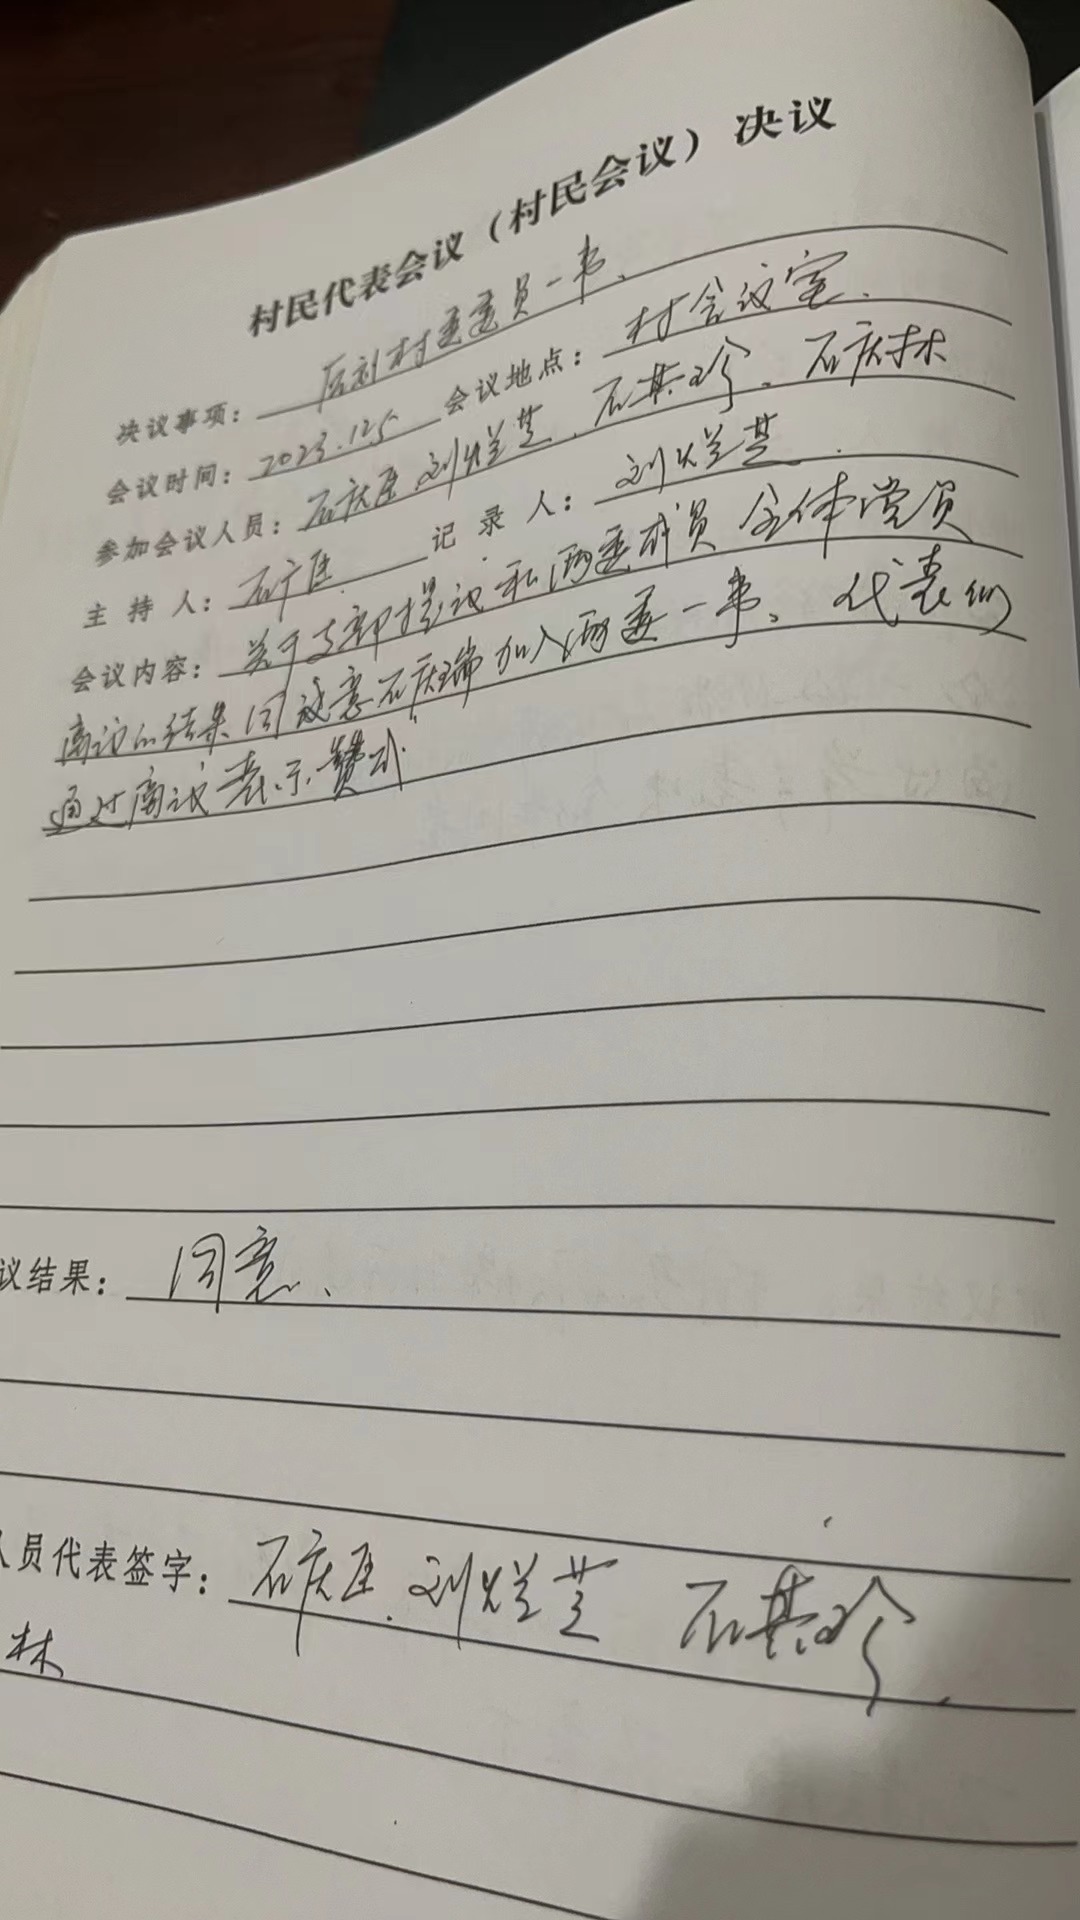 村民代表会议（村民会议）决议
决议事项： 村委委员一事、
会议时间：2023.12.5 会议地点：村会议室．
参加会议人员：石庆 、刘 芝、石其珍、石庆林
主 持 人： 记 录 人：刘 芝．
会议内容：关于支部提议和两委成员全体党员
商议的结果同 意石庆瑞加入两委一事、代表们
通过商议表示赞成．
议结果：同意、
人员代表签字：石庆 、刘 芝 石其珍
林